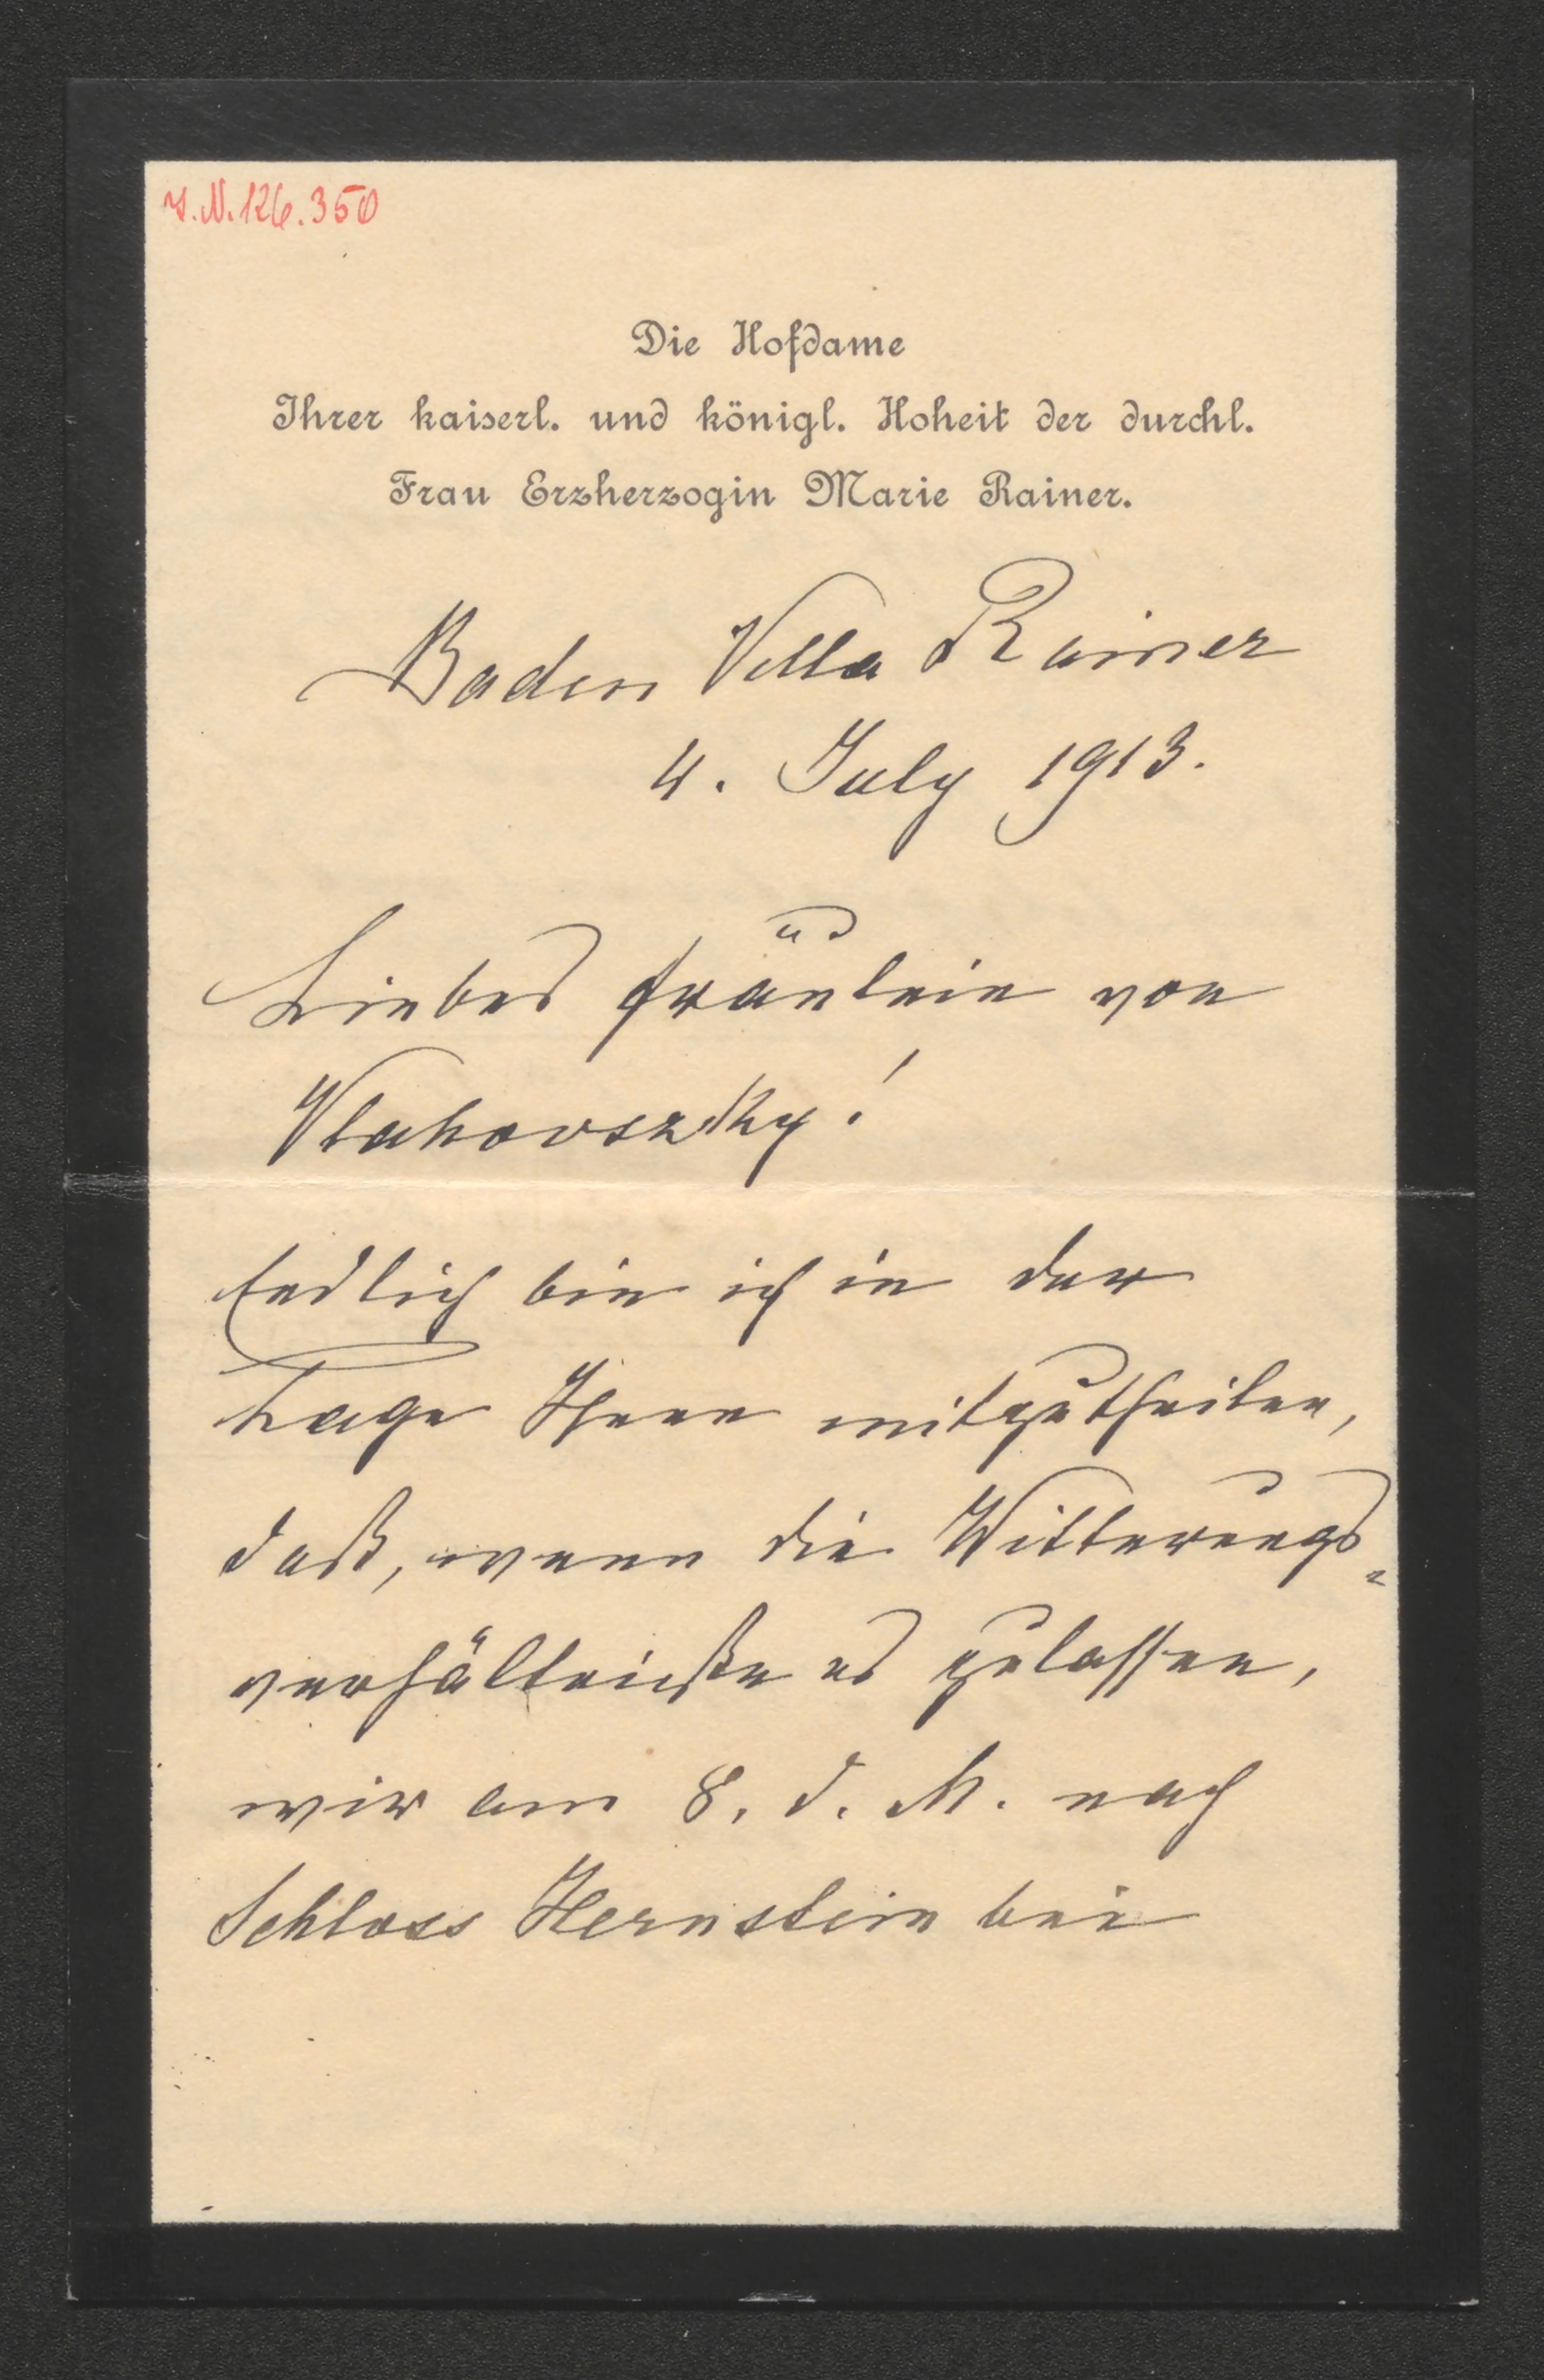 I.N. 126.350
Die Hofdame
Ihrer kaiserl. und königl. Hoheit der durchl.
Frau Erzherzogin Marie Rainer.
Baden Villa Rainer
4. July 1913.
Liebes Fräulein von
Vlahovszky!
Endlich bin ich in der
Lage Ihnen mitzutheilen,
daß, wenn die Witterungs-
verhältniße es zulassen,
wir am 8. d. M. nach
Schloss Hernstein bei